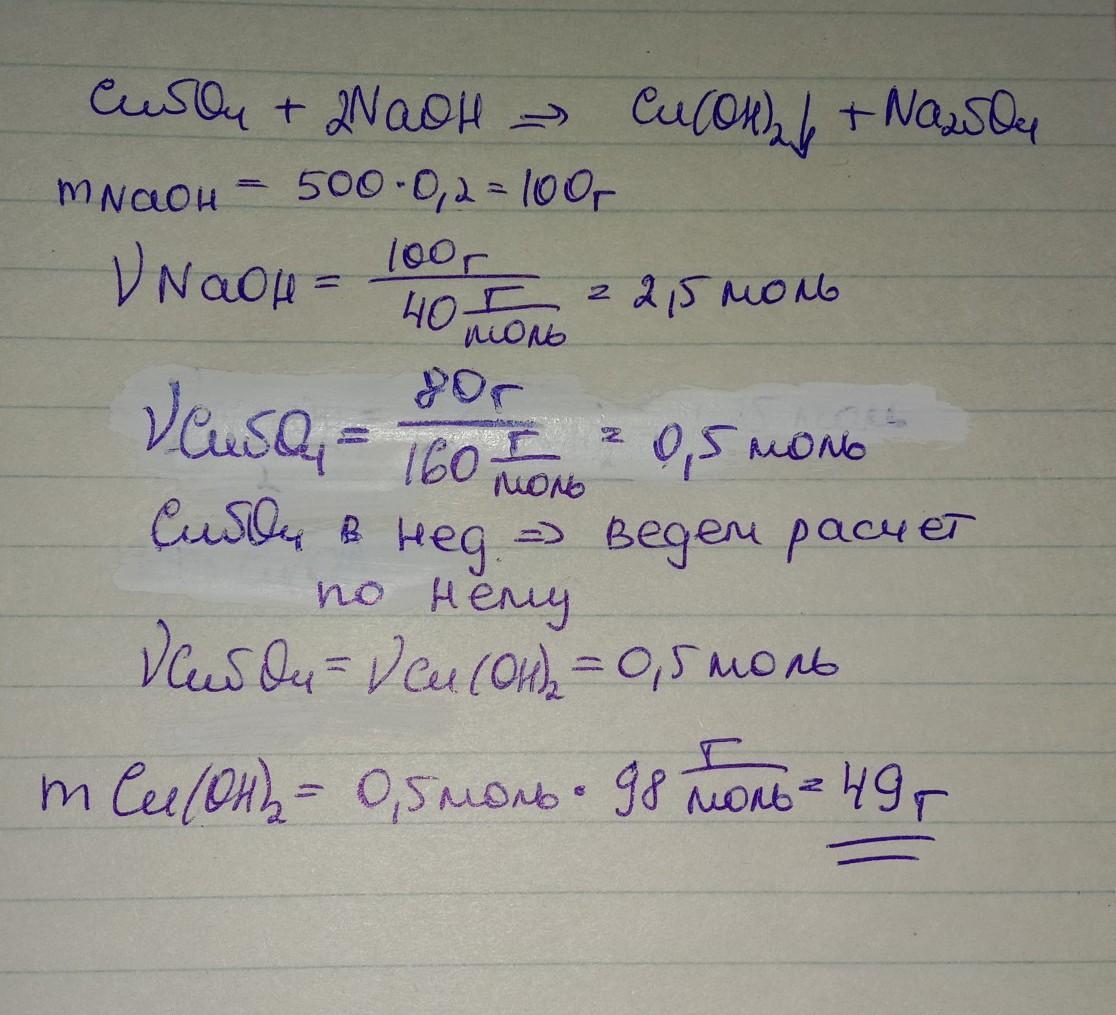 CuSO₄ + 2NaOH ⇒ Cu(OH)₂↓ + Na₂SO₄
m NaOH = 500·0,2 = 100г
ν NaOH = 100г / 40 г/моль = 2,5 моль
ν CuSO₄ = 80г / 160 г/моль = 0,5 моль
CuSO₄ в нед ⇒ ведем расчет
по нему
ν CuSO₄ = ν Cu(OH)₂ = 0,5 моль
m Cu(OH)₂ = 0,5 моль · 98 г/моль = 49 г